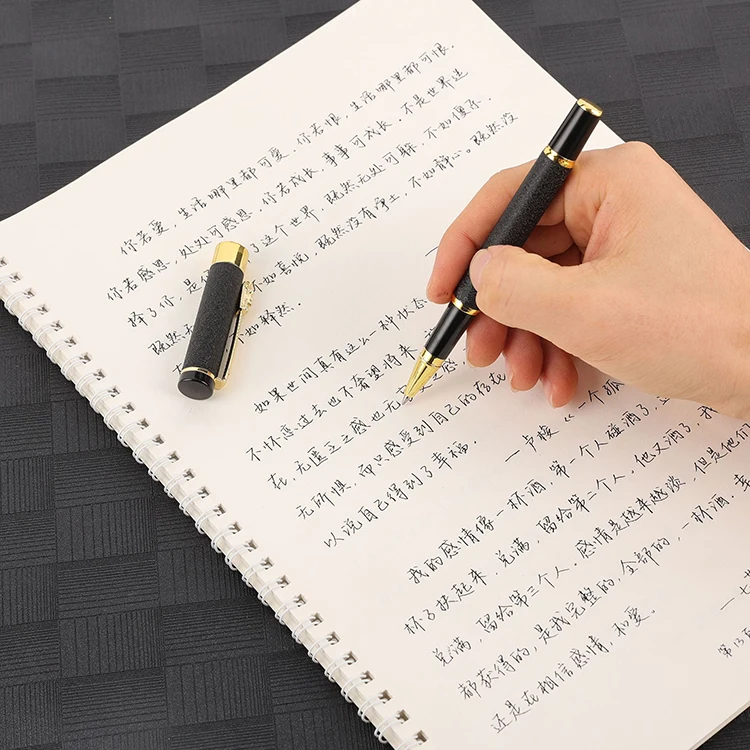 你若爱，生活哪里都可爱．你若恨，生活哪里都可恨．
你若感恩，处处可感恩．你若成长，事事可成长．不是世界选
择了你，是 了这个世界．既然无处可躲，不如傻乐．
既然无 不如喜悦，既然没有净土，不如静心．既然没
不如释然．
如果世间真有这么一种状态
不怀恋过去也不奢望将来
在．无匮乏之感也无 之感
无所惧，而只感受到自己的存在
以说自己得到了幸福．
—卢梭《一个孤
我的感情像一杯酒．第一个人碰洒了，
杯子扶起来，兑满，留给第二个人．他又洒了，我
兑满，留给第三个人．感情是越来越淡，但是他们
都获得的，是我完整的，全部的，一杯酒．幸
还是在相信感情，和爱．
—七
第15页